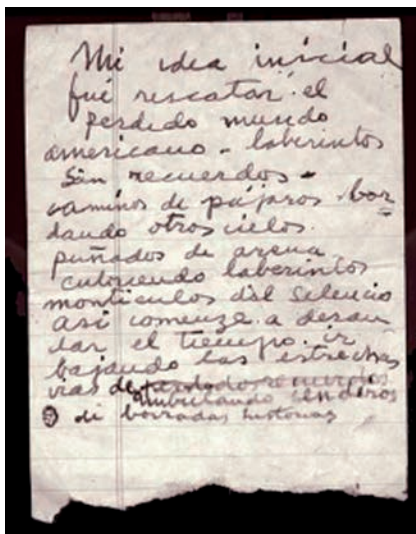 Mi idea inicial
fué rescatar el
perdido mundo
americano - laberintos
sin recuerdos -
caminos de pájaros - bor-
dando otros cielos.
puñados de arena
cubriendo laberintos
montículos del silencio
así comenze a desan
dar el tiempo. ir
bajando las estrechas
vias de
ambulando senderos
de borradas historias